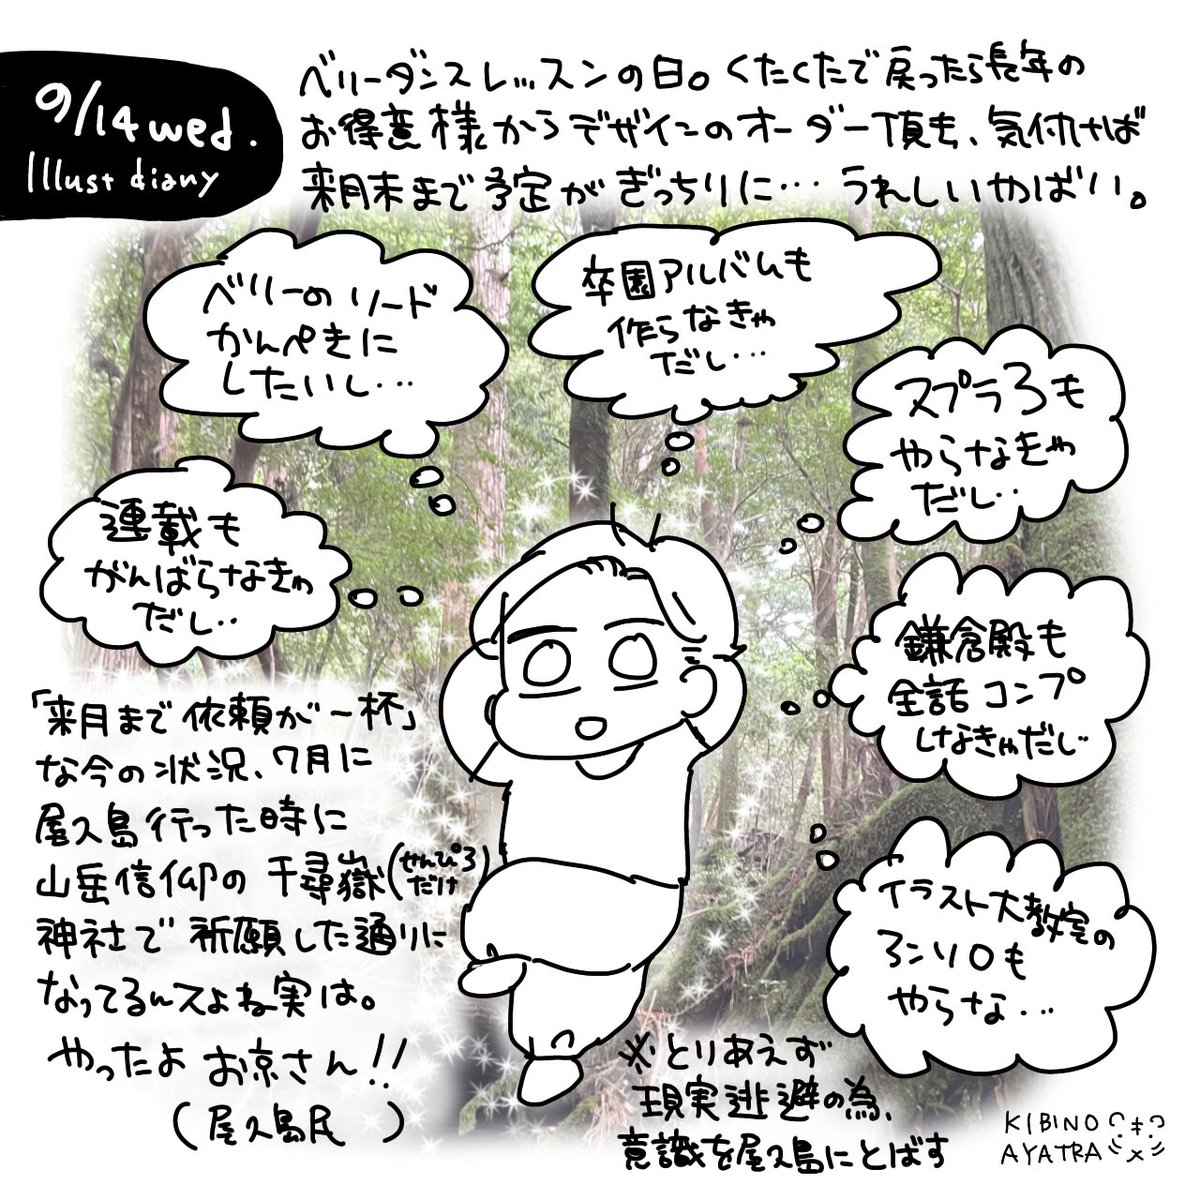 9/14 wed.
Illust diary
ベリーダンスレッスンの日。くたくたで戻ったら長年の
お得意様からデザインのオーダー頂も、気付けば
来月末まで予定がぎっちりに…うれしいやばい。
ベリーのソード
かんぺきに
したいし…
卒園アルバムも
作らなきゃ
だし…
スプラ3も
やらなきゃ
だし‥
連載も
がんばらなきゃ
だし‥
鎌倉殿も
全話コンプ
しなきゃだし‥
イラスト大教室の
ろンソロも
やらな…
「来月まで依頼が一杯」
な今の状況、7月に
屋久島行った時に
山岳信仰の千尋嶽(せんぴろ
だけ)
神社で祈願した通りに
なってるんスよね実は。
やったよお京さん!!
(屋久島民 )
※とりあえず
現実逃避の為、
意識を屋久島にとばす
KIBINO
AYATRA